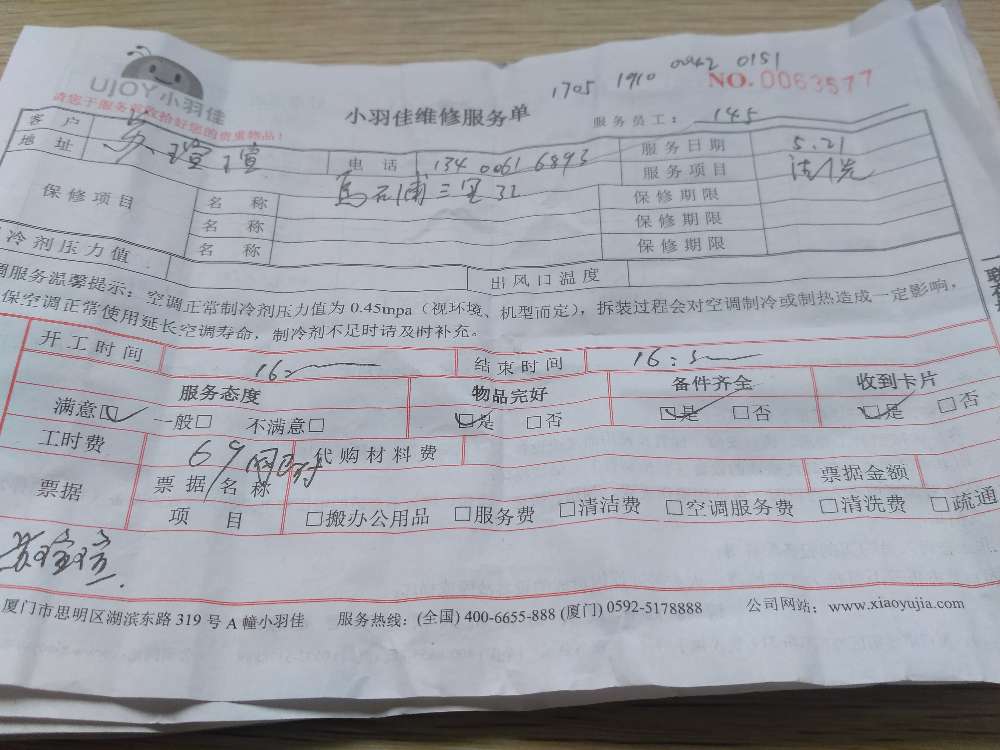 UJOY小羽佳
请您于服务前收恰好您的贵重物品！
1705 1910 0042 0151
NO.0063577
小羽佳维修服务单
服务员工： 145
客 户 电 话 134 0061 6893 服务日期 5.21
地 址 乌石浦三里32 服务项目 清洗
保修项目 名 称 保修期限
名 称 保修期限
名 称 保修期限
冷剂压力值 出风口温度
调服务温馨提示：空调正常制冷剂压力值为 0.45mpa（视环境、机型而定），拆装过程会对空调制冷或制热造成一定影响，
保空调正常使用延长空调寿命，制冷剂不足时请及时补充。
开工时间 16: 结束时间 16:5
服务态度 物品完好 备件齐全 收到卡片
满意□ 一般□ 不满意□ □是 □否 □是 □否 □是 □否
工时费 69/网已付 代购材料费
票据 票据名称 票据金额
项 目 □搬办公用品 □服务费 □清洁费 □空调服务费 □清洗费 □疏通
厦门市思明区湖滨东路 319 号 A 幢小羽佳 服务热线：(全国) 400-6655-888 (厦门) 0592-5178888 公司网站：www.xiaoyujia.com